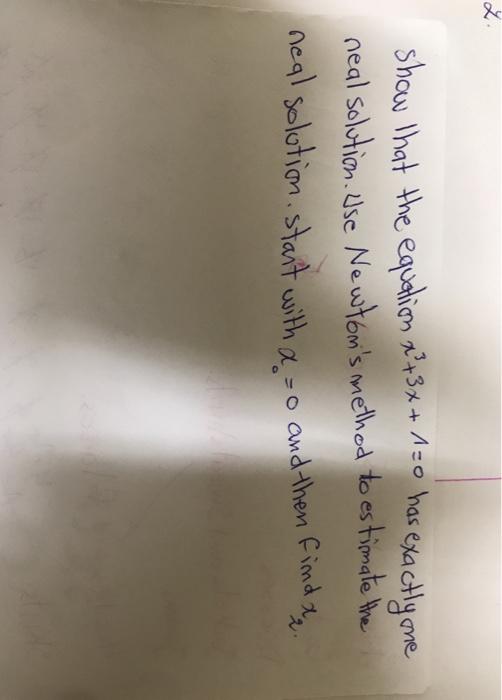 2.
show that the equation x³+3x+1=0 has exactly one
real solution. Use Newton's method to estimate the
real solution. start with x₀=0 and then find x₂.